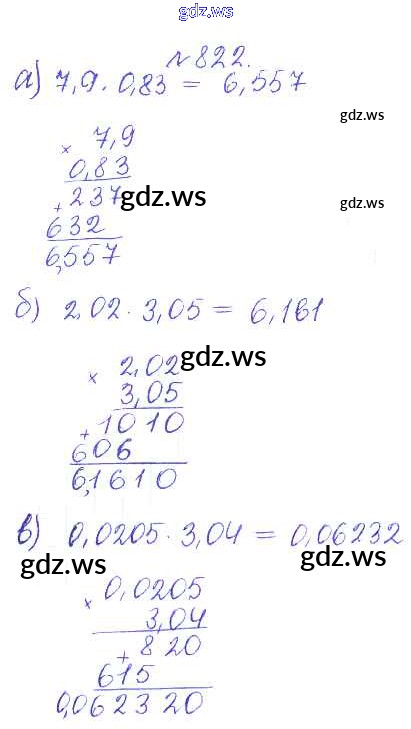 gdz.ws
№822.
а) 7,9 · 0,83 = 6,557
gdz.ws
× 7,9
0,83
+ 237 gdz.ws gdz.ws
632
6,557
б) 2,02 · 3,05 = 6,161
× 2,02 gdz.ws
3,05
+ 1010
606
6,1610
в) 0,0205 · 3,04 = 0,06232
gdz.ws gdz.ws
× 0,0205
3,04
+ 820
615 gdz.ws
0,062320